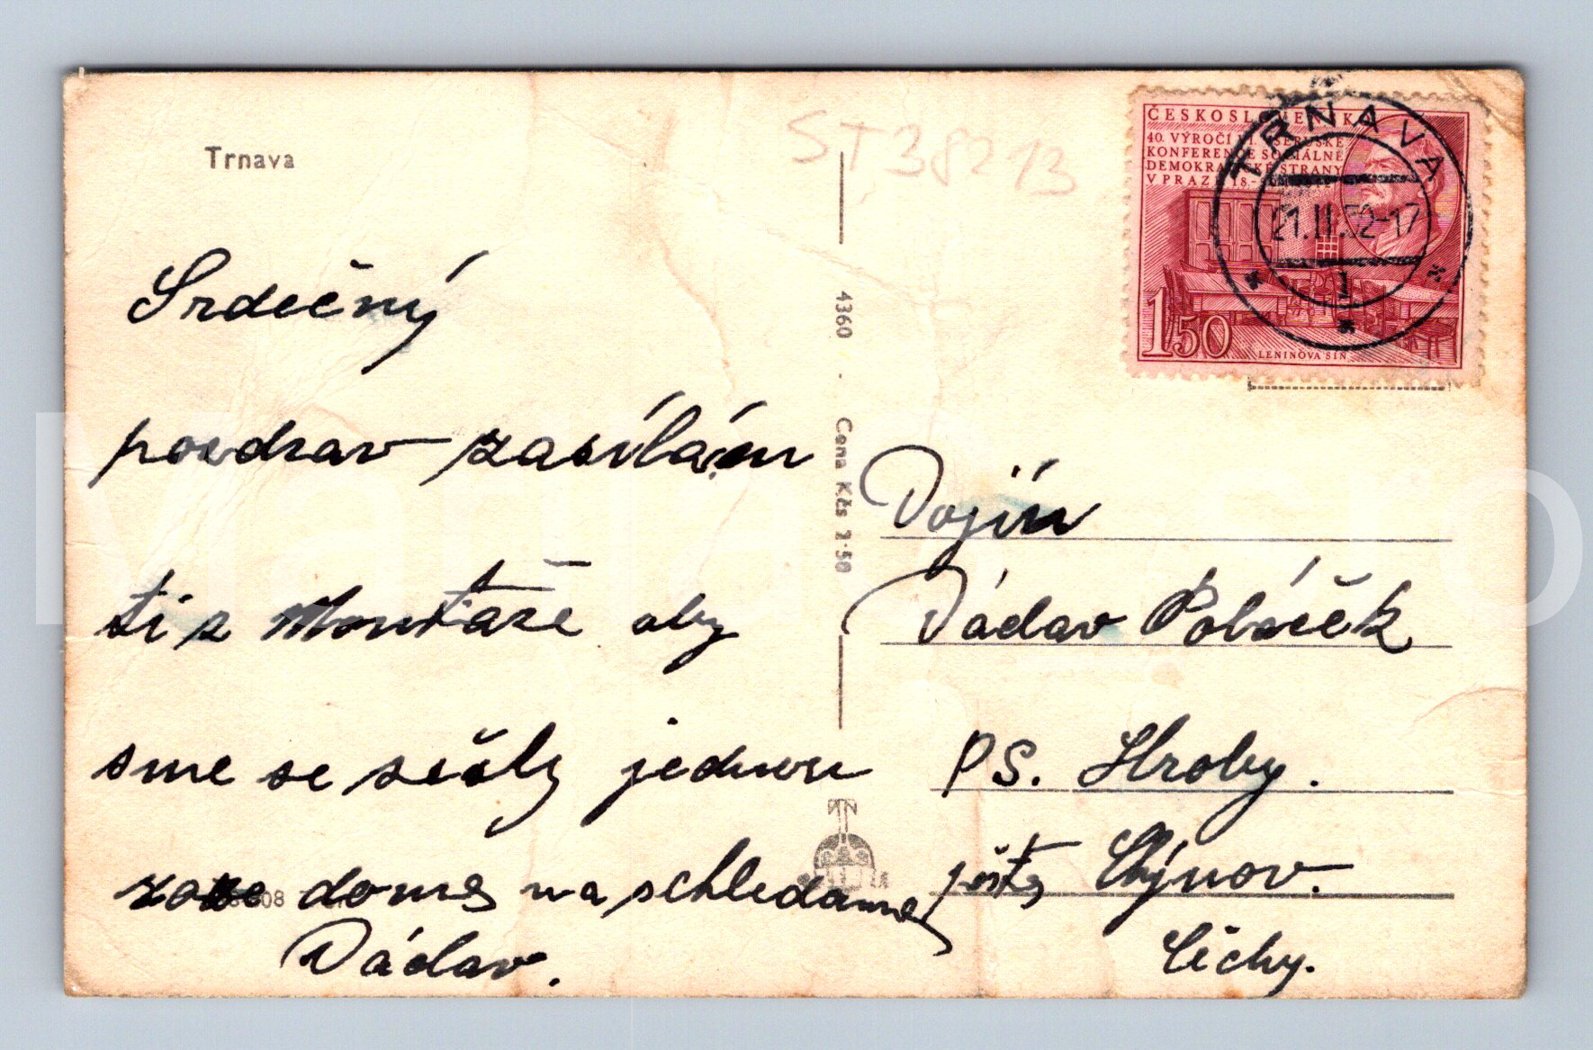 Trnava
ST 38213
ČESKOSLOVENSKO
40. VÝROČÍ
KONFERENCE SOCIÁLNĚ
DEMOKRATICKÉ STRANY
V PRAZE 18.-
1,50
LENINOVA SÍŇ
TRNAVA
21.II.52-17
1
Srdečný
pozdrav zasílám
ti z Montáže aby
sme se sešly jednou
zase doma na schledanou
Václav.
4360 · Cena Kčs 2·50
Vojín
Václav Poláček
PS. Hroby.
pošta Chýnov.
Čechy.